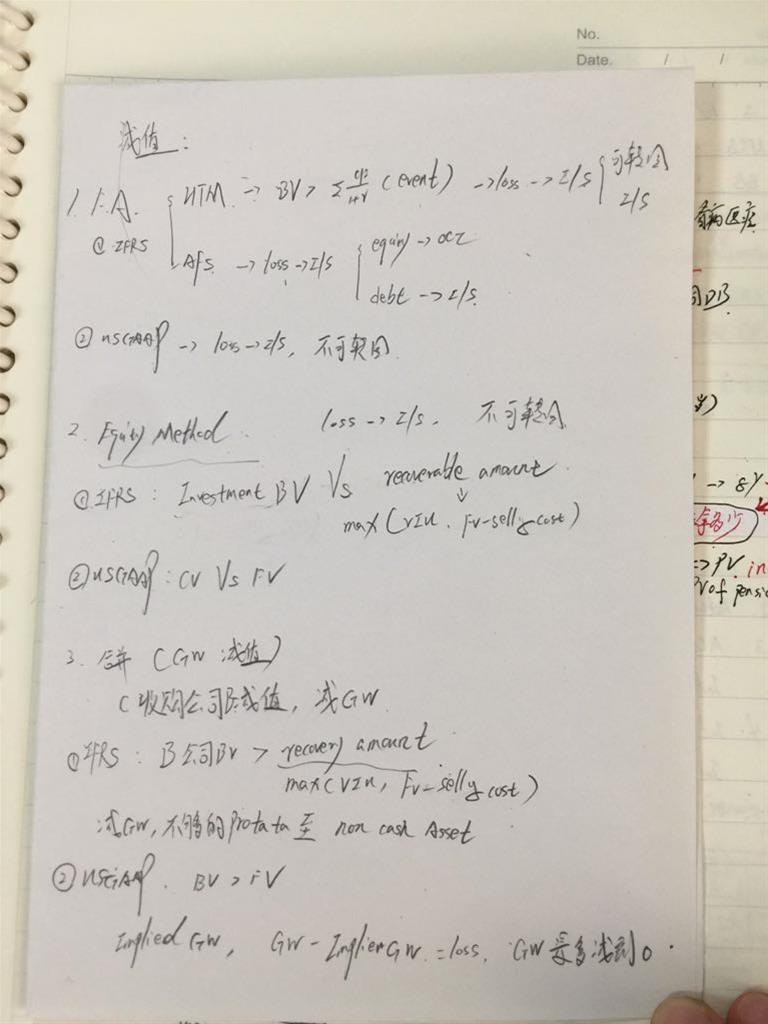 No.
Date. / /
减值:
1. F.A. HTM → BV > Σ CF/1+r (event) → loss → I/S 可转回
I/S
① IFRS
AFS → loss → I/S equity → OCI
debt → I/S.
② USGAAP → loss → I/S, 不可转回
2. Equity Method loss → I/S. 不可转回
① IFRS: Investment BV Vs recoverable amount
↓
max (VIU. FV-selling cost)
② USGAAP: CV Vs FV
3. 合并 (GW 减值)
C 收购公司B减值, 减GW
① IFRS: B公司BV > recovery amount
max (VIU, FV-selling cost)
减GW, 不够的 Prorata 至 non cash Asset
② USGAAP. BV > FV
Implied GW, GW - Implied GW = loss. GW 最多减到0.
看病医疗
司DB
→ 8Y
拿多少
=> PV. in
PV of pensio